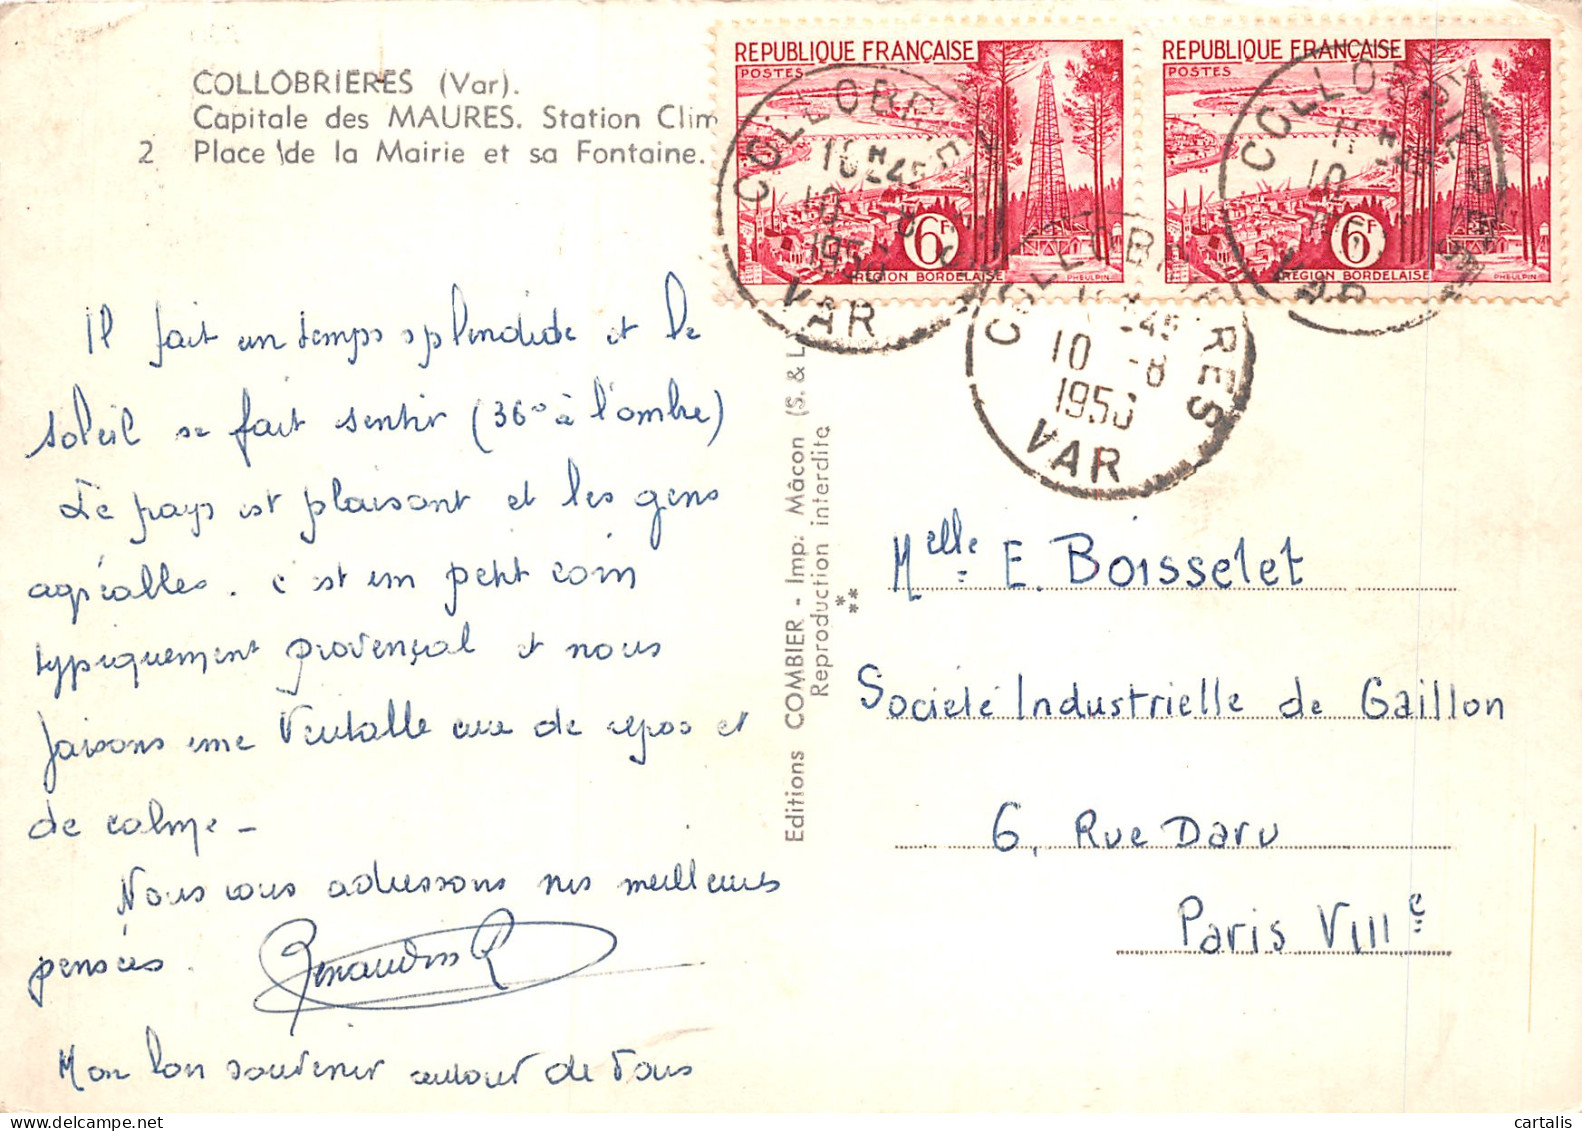 COLLOBRIERES (Var).
Capitale des MAURES. Station Clim
2 Place de la Mairie et sa Fontaine.
REPUBLIQUE FRANÇAISE
POSTES
6F
RÉGION BORDELAISE
PHEULPIN
REPUBLIQUE FRANÇAISE
POSTES
6F
RÉGION BORDELAISE
PHEULPIN
COLLOBRIERES
10 -8
VAR
COLLOBRIERES
10 -8
VAR
COLLOBRIERES
10
VAR
Il fait un temps splendide et le
soleil se fait sentir (36° à l'ombre)
Le pays est plaisant et les gens
agréables. C'est un petit coin
typiquement provençal et nous
faisons une véritable cure de repos et
de calme -
Nous vous adressons nos meilleures
pensées.
Mon bon souvenir autour de vous
Editions COMBIER - Imp. Mâcon (S. & L.
Reproduction interdite
Melle E. Boisselet
Société Industrielle de Gaillon
6, Rue Daru
Paris VIIIe
cartalis